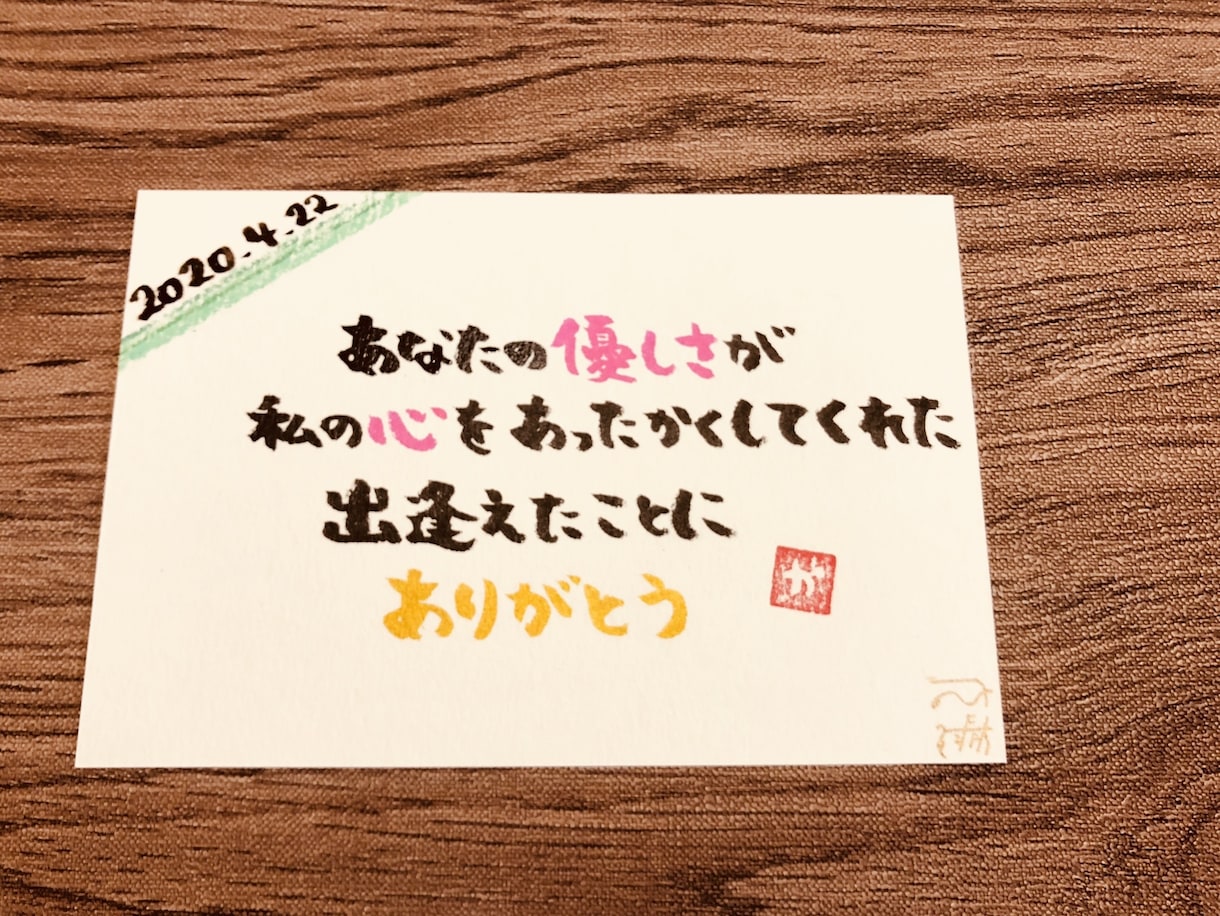 2020.4.22
あなたの優しさが
私の心をあったかくしてくれた
出逢えたことに
ありがとう
か